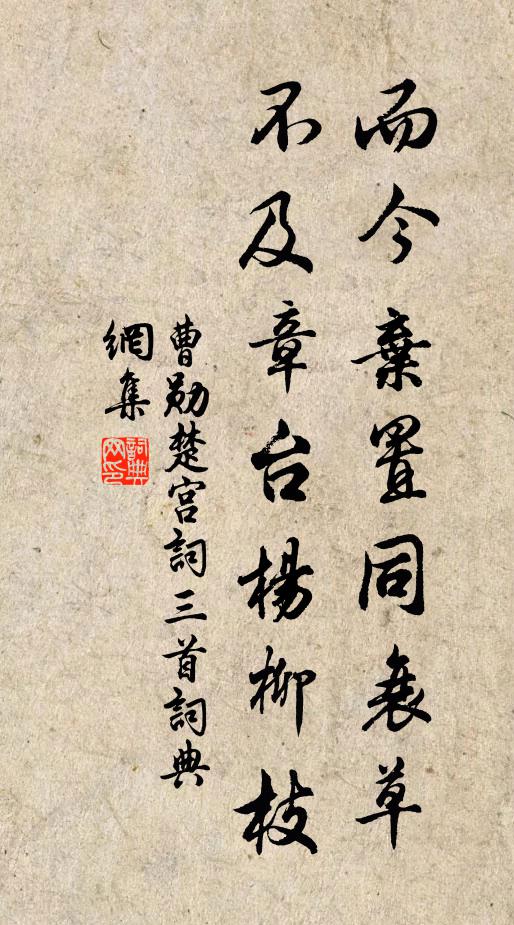 而今棄置同衰草
不及章台楊柳枝
曹勛楚宮詞三首詞典
網集
詞典
网印